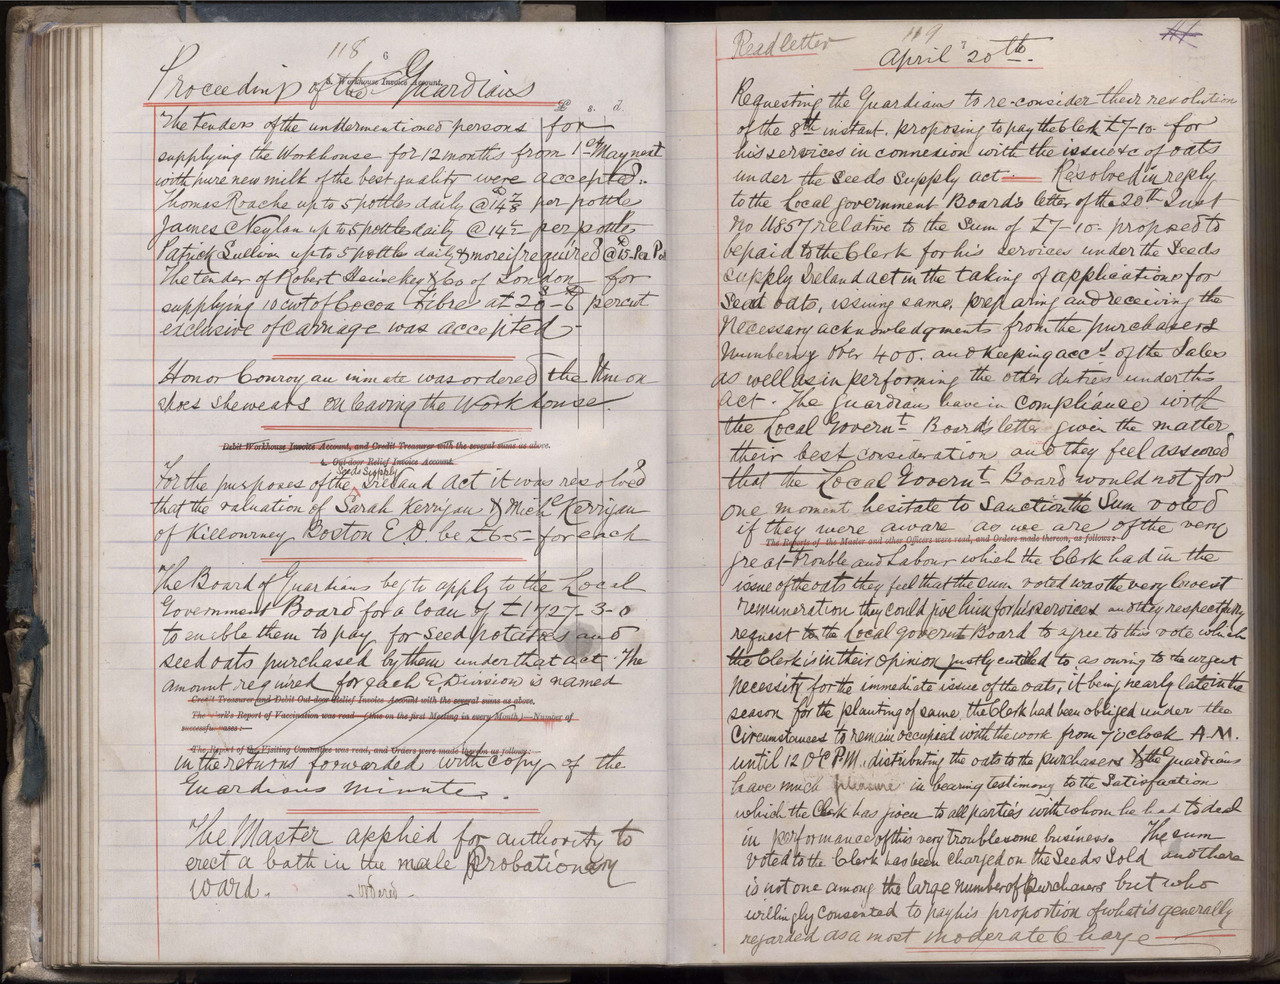 118
Proceedings of the Guardians
b. Workhouse Invoice Account.
£ s. d.
The tenders of the undermentioned persons for
supplying the Workhouse for 12 months from 1st May next
with pure new milk of the best quality were accepted:
Thomas Roache up to 5 pottles daily @ per pottle
James Neylan up to 5 pottles daily @ per pottle
Patrick Sullivan up to 5 pottles daily & more if required @ 15
The tender of Robert & Co of London for
supplying 10 cwt of Cocoa Fibre at 20 - 6 per cwt
exclusive of carriage was accepted -
Honor Conroy an inmate was ordered the Union
shoes she wears on leaving the Workhouse.
Debit Workhouse Invoice Account, and Credit Treasurer with the several sums as above.
b. Out-door Relief Invoice Account.
Seeds Supply
For the purposes of the Ireland Act it was resolved
that the valuation of Sarah Kerrigan & Michl Kerrigan
of Killourney Boston E.D. be £6-5- for each
The Board of Guardians beg to apply to the Local
Government Board for a loan of £1727-3-0
to enable them to pay for seed potatoes and
seed oats purchased by them under that act. The
amount required for each E. Division is named
Credit Treasurer and Debit Out-door Relief Invoice Account with the several sums as above.
The Clerk's Report of Vaccination was read (this on the first Meeting in every Month)—Number of
successful cases:—
The Report of the Visiting Committee was read, and Orders were made thereon as follows:—
in the returns forwarded with copy of the
Guardians minute.
The Master applied for authority to
erect a bath in the male Probationary
ward. - ordered -
119
Read letter
April 20th.
Requesting the Guardians to re-consider their resolution
of the 8th instant, proposing to pay the Clerk £7-10- for
his services in connexion with the issue &c of oats
under the Seeds Supply act - Resolved in reply
to the Local Government Board's letter of the 20th Inst
No 11857 relative to the Sum of £7-10- proposed to
be paid to the Clerk for his services under the Seeds
Supply Ireland act in the taking of applications for
Seed oats, issuing same, preparing and receiving the
Necessary acknowledgments from the purchasers
Numbering over 400. and keeping accts of the Sales
as well as in performing the other duties under this
act. The Guardians have in compliance with
the Local Governt Board's letter given the matter
their best consideration and they feel assured
that the Local Governt Board would not for
one moment hesitate to Sanction the Sum voted
if they were aware as we are of the very
The Reports of the Master and other Officers were read, and Orders made thereon, as follows:
great trouble and Labour which the Clerk had in the
issue of the oats they feel that the sum voted was the very lowest
remuneration they could give him for his services and they respectfully
request to the Local Governt Board to agree to this vote which
the Clerk is in their Opinion justly entitled to, as owing to the urgent
Necessity for the immediate issue of the oats, it being nearly late in the
season for the planting of same, the Clerk had been obliged under the
Circumstances to remain occupied with the work from 7 o'clock A.M.
until 12 O'C P.M., distributing the oats to the purchasers & the Guardians
have much pleasure in bearing testimony to the Satisfaction
which the Clerk has given to all parties with whom he had to deal
in performance of this very troublesome business. The sum
voted to the Clerk has been charged on the Seeds Sold and there
is not one among the large number of purchasers but who
willingly consented to pay his proportion of what is generally
regarded as a most moderate Charge